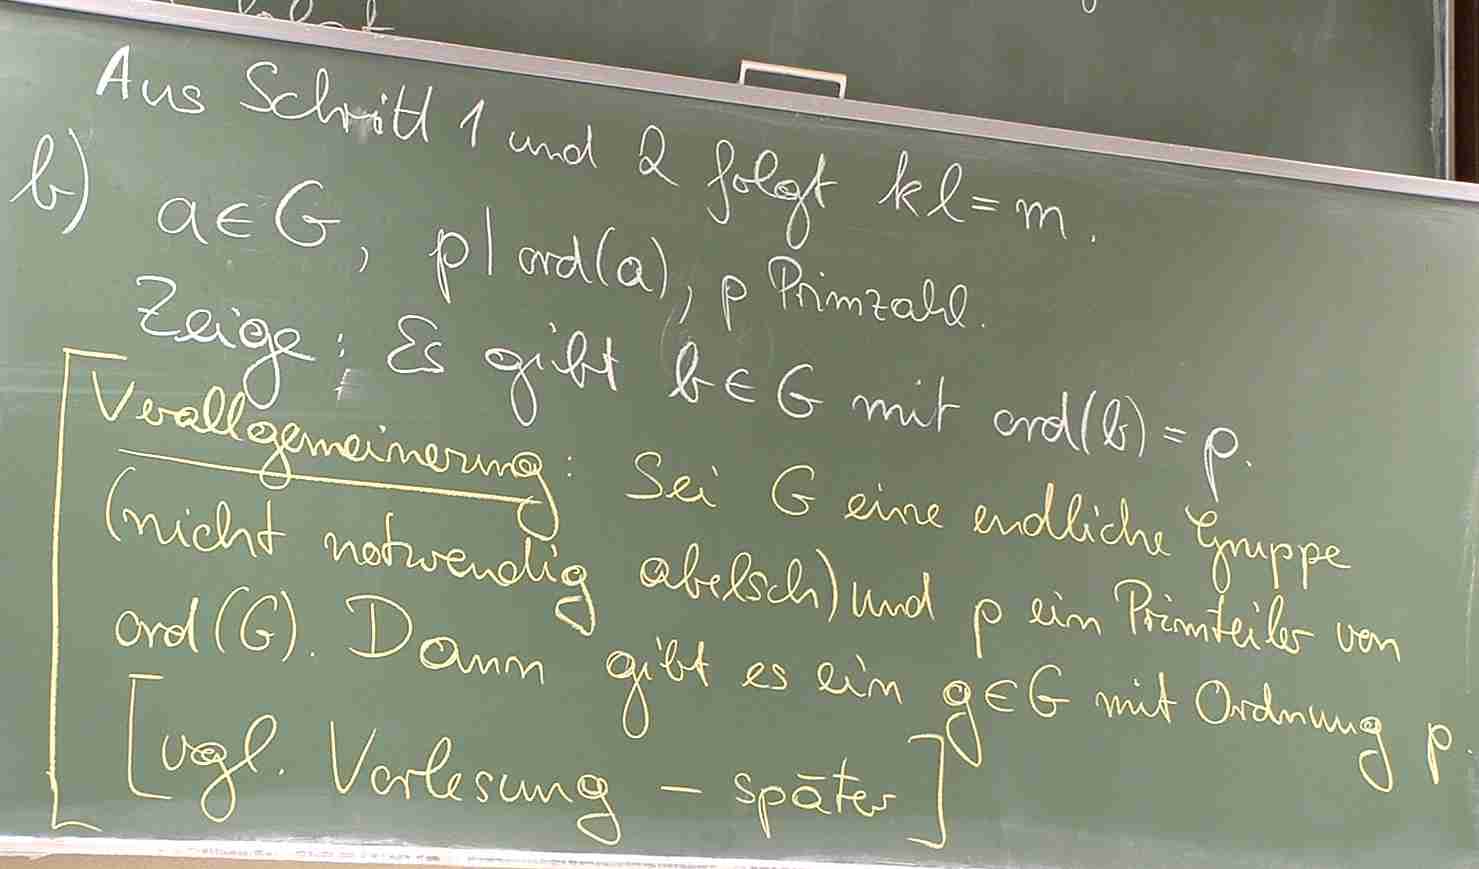 Aus Schritt 1 und 2 folgt kl = m.
b) a ∈ G, p | ord(a), p Primzahl.
Zeige: Es gibt b ∈ G mit ord(b) = p.
Verallgemeinerung: Sei G eine endliche Gruppe
(nicht notwendig abelsch) und p ein Primteiler von
ord(G). Dann gibt es ein g ∈ G mit Ordnung p.
[vgl. Vorlesung – später]